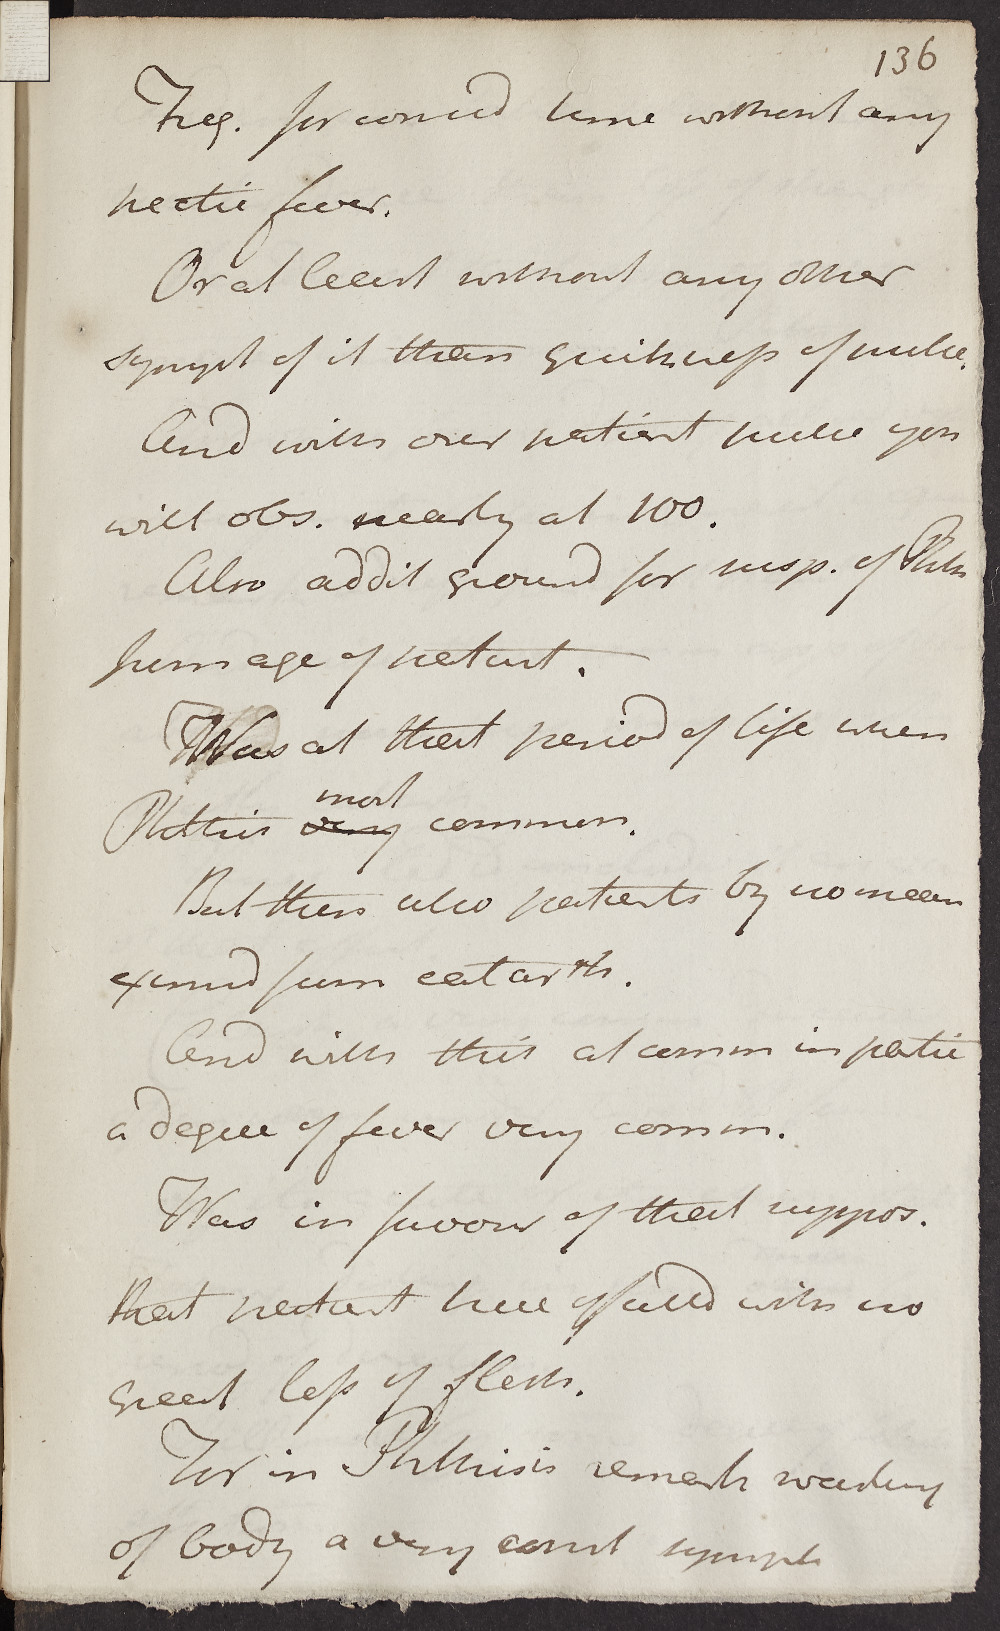 136
Freq. for consid time without any
hectic fever.
Or at least without any other
sympt of it than quickness of pulse.
And with our patient pulse you
will obs. nearly at 100.
Also addit ground for susp. of Phth
from age of patient.
Was at that period of life when
Phthisis very most common.
But then also patients by no mean
exemd from catarrh.
And with this at comm in partic
a degree of fever very comm.
Was in favour of that suppos.
that patient here affected with no
great loss of flesh.
For in Phthisis remark wasting
of body a very const sympt